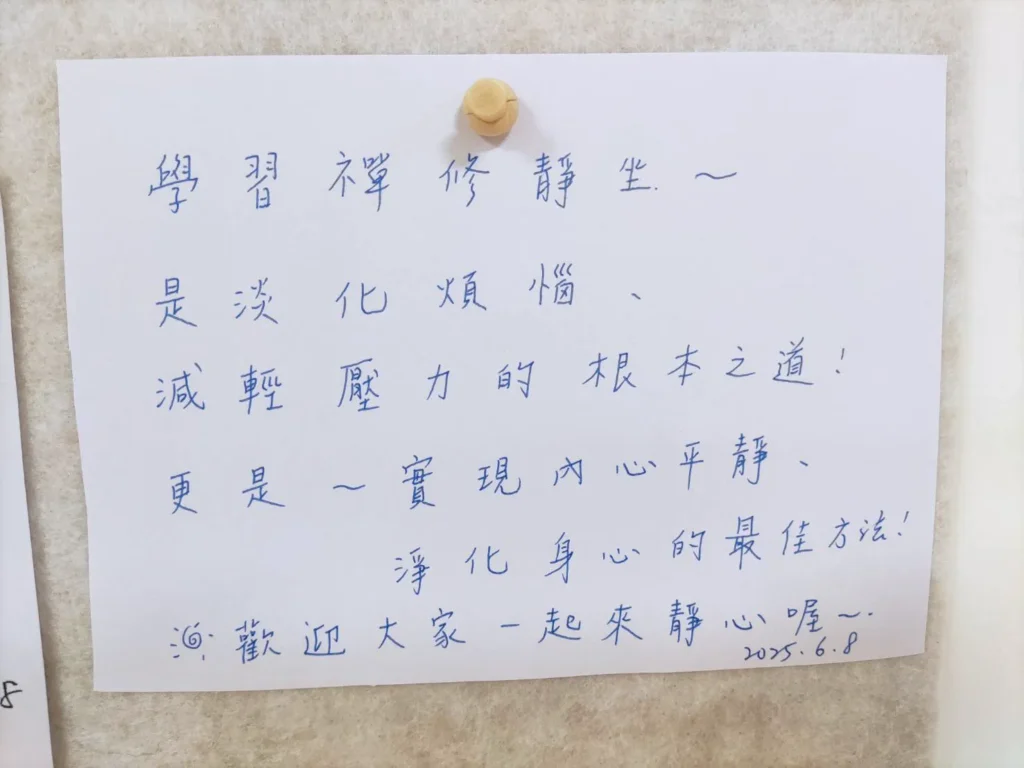 學習禪修靜坐~
是淡化煩惱、
減輕壓力的根本之道!
更是~實現內心平靜、
淨化身心的最佳方法!
歡迎大家一起來靜心喔~.
2025.6.8
8